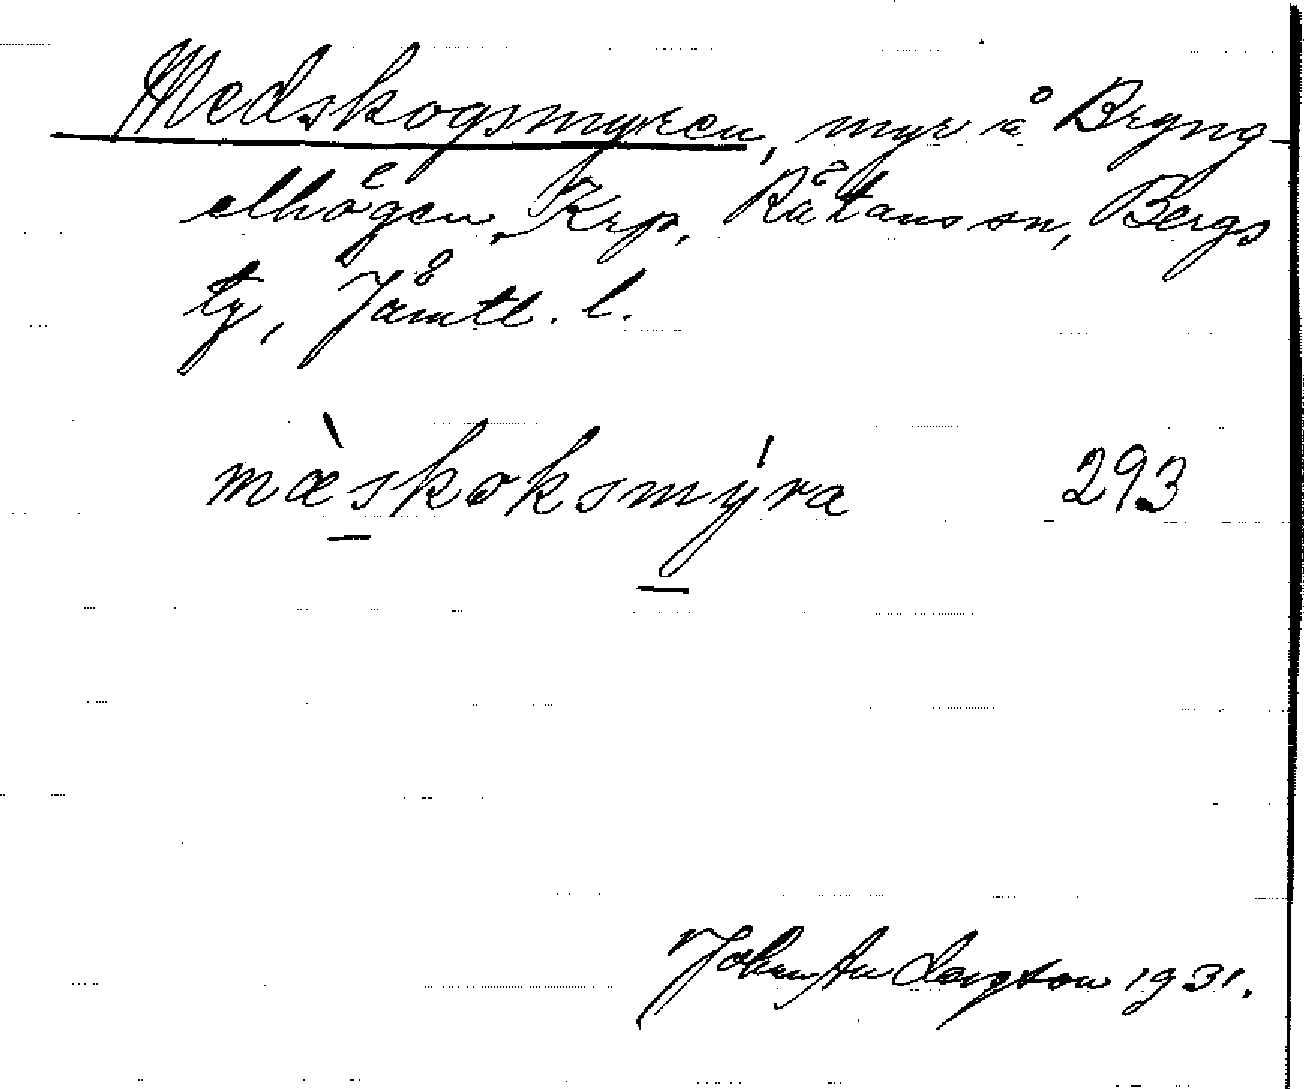 Medskogsmyren, myr å Bryng-
elhögen, Krp, Rätans sn, Bergs
tg, Jämtl. l.
mæ̀skoksmýra 293
Johan Anderson 1931.